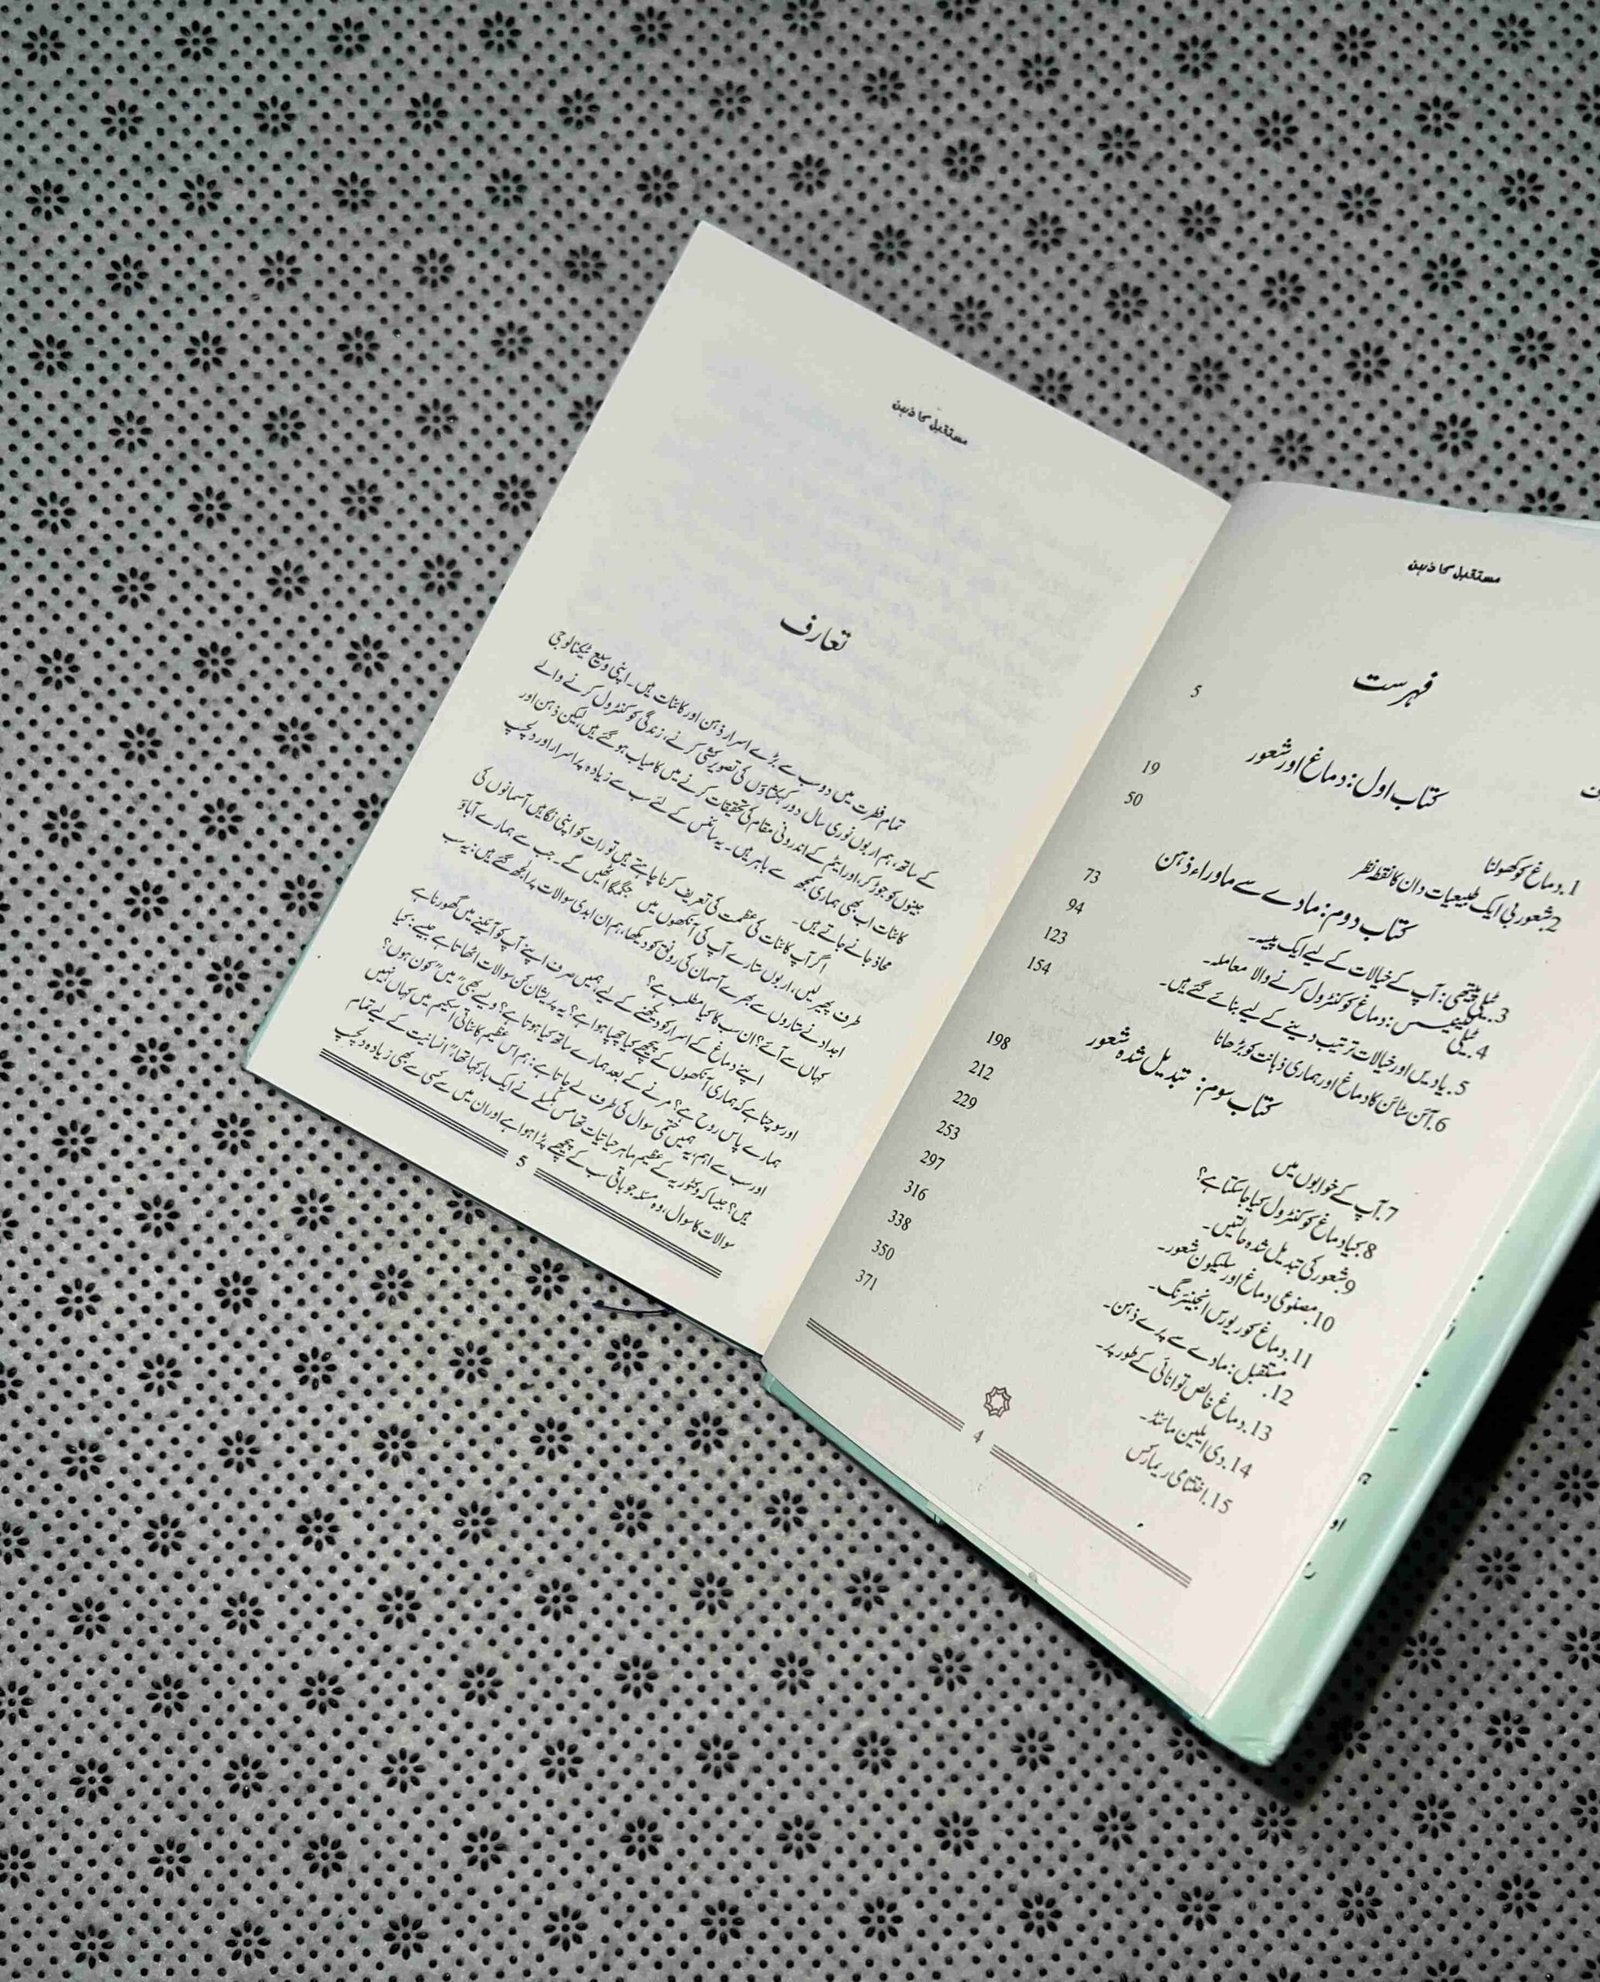 مستقبل کا ذہن
فہرست
5
کتاب اول: دماغ اور شعور
1. دماغ کو کھولنا
19
2. شعور کی ایک طبیعیات دان کا نقطہ نظر
50
کتاب دوم: مادے سے ماوراء ذہن
3. ٹیلی پیتھی: آپ کے خیالات کے لیے ایک پیسہ۔
73
4. ٹیلی کینیسس: دماغ کو کنٹرول کرنے والا معاملہ۔
94
5. یادیں اور خیالات ترتیب دینے کے لیے بنائے گئے ہیں۔
123
6. آئن سٹائن کا دماغ اور ہماری ذہانت کو بڑھانا
154
کتاب سوم: تبدیل شدہ شعور
7. آپ کے خوابوں میں
198
8. کیا دماغ کو کنٹرول کیا جا سکتا ہے؟
212
9. شعور کی تبدیل شدہ حالتیں۔
229
10. مصنوعی دماغ اور سلیکون شعور۔
253
11. دماغ کو ریورس انجینئرنگ۔
297
12. مستقبل: مادے سے پرے ذہن۔
316
13. دماغ خالص توانائی کے طور پر۔
338
14. دی ایلین مائنڈ۔
350
15. اختتامی ریمارکس
371
4
مستقبل کا ذہن
تعارف
تمام فطرت میں دو سب سے بڑے اسرار ذہن اور کائنات ہیں۔ اپنی وسیع ٹیکنالوجی
کے ساتھ، ہم اربوں نوری سال دور کہکشاؤں کی تصویر کشی کرنے، زندگی کو کنٹرول کرنے والے
جینوں کو جوڑ کر، اور ایٹم کے اندرونی مقام کی تحقیقات کرنے میں کامیاب ہو گئے ہیں، لیکن ذہن اور
کائنات اب بھی ہماری سمجھ سے باہر ہیں۔ یہ سائنس کے لئے سب سے زیادہ پر اسرار اور دلچسپ
محاذ جانے جاتے ہیں۔
اگر آپ کائنات کی عظمت کی تعریف کرنا چاہتے ہیں تو رات کو اپنی نگاہیں آسمانوں کی
طرف پھیر لیں، اربوں ستارے آپ کی آنکھوں میں جگمگا اٹھیں گے۔ جب سے ہمارے آباؤ
اجداد نے ستاروں سے بھرے آسمان کی رونق کو دیکھا، ہم ان ابدی سوالات پر الجھ گئے ہیں: یہ سب
کہاں سے آئے؟ ان سب کا کیا مطلب ہے؟
اپنے دماغ کے اسرار کو دیکھنے کے لیے، ہمیں صرف اپنے آپ کو آئینے میں گھورنا ہے
اور سوچنا ہے کہ ہماری آنکھوں کے پیچھے کیا چھپا ہوا ہے؟ یہ پریشان کن سوالات اٹھاتا ہے جیسے: کیا
ہمارے پاس روح ہے؟ مرنے کے بعد ہمارے ساتھ کیا ہوتا ہے؟ ویسے بھی "میں" کون ہوں؟
اور سب سے اہم، یہ ہمیں حتمی سوال کی طرف لے جاتا ہے: ہم اس عظیم کائناتی اسکیم میں کہاں نہیں
ہیں؟ جیسا کہ وکٹوریہ کے عظیم ماہر حیاتیات تھامس ہکسلے نے ایک بار کہا تھا، "انسانیت کے لیے تمام
سوالات کا سوال، وہ مسئلہ جو باقی سب کے پیچھے پڑا ہوا ہے اور ان میں سے کسی سے بھی زیادہ دلچسپ
5